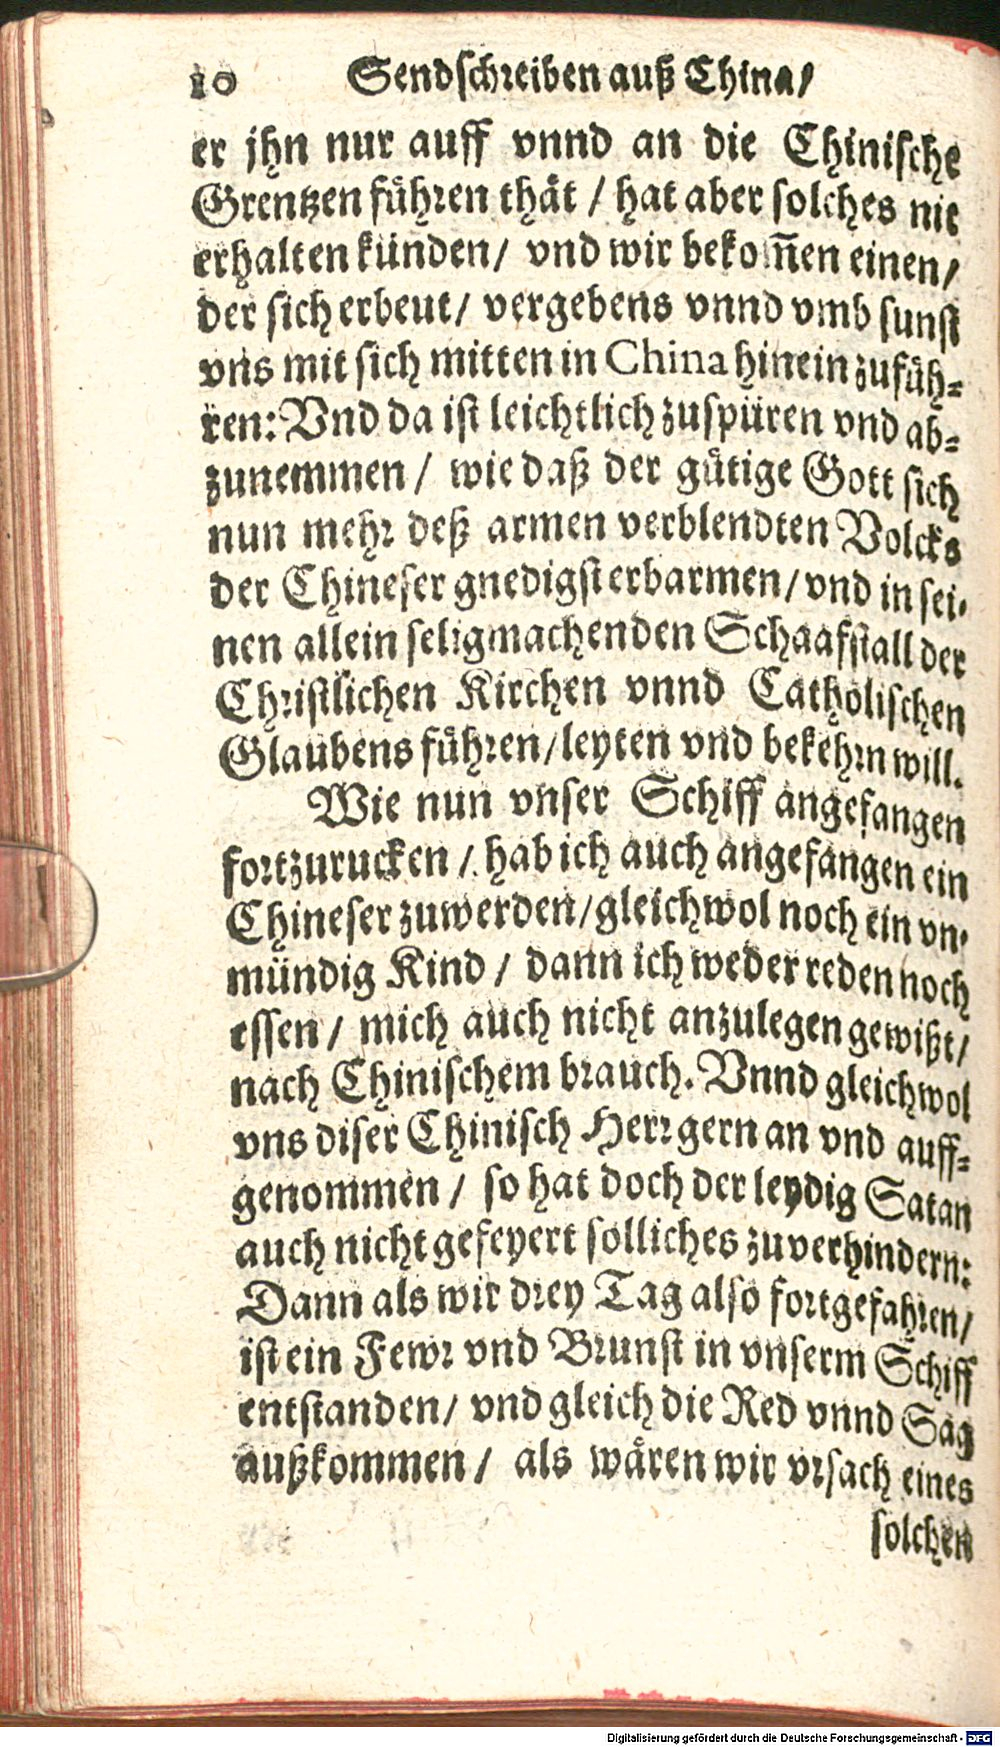 10 Sendschreiben auß China/
er jhn nur auff vnnd an die Chinische
Grentzen fuͤhren thaͤt / hat aber solches nit
erhalten künden/ vnd wir bekom̃en einen/
der sich erbeut/ vergebens vnnd vmb sunst
vns mit sich mitten in China hinein zufuͤh-
ren: Vnd da ist leichtlich zuspüren vnd ab-
zunemmen / wie daß der guͤtige Gott sich
nun mehr deß armen verblendten Volcks
der Chineser gnedigst erbarmen/ vnd in sei-
nen allein seligmachenden Schaafstall der
Christlichen Kirchen vnnd Catholischen
Glaubens fuͤhren/ leyten vnd bekehrn will.
Wie nun vnser Schiff angefangen
fortzurucken / hab ich auch angefangen ein
Chineser zuwerden/ gleichwol noch ein vn-
mündig Kind / dann ich weder reden noch
essen / mich auch nicht anzulegen gewißt/
nach Chinischem brauch. Vnnd gleichwol
vns diser Chinisch Herr gern an vnd auff-
genommen / so hat doch der leydig Satan
auch nicht gefeyert solliches zuverhindern:
Dann als wir drey Tag also fortgefahren/
ist ein Fewr vnd Brunst in vnserm Schiff
entstanden/ vnd gleich die Red vnnd Sag
außkommen / als waͤren wir vrsach eines
solchen
Digitalisierung gefördert durch die Deutsche Forschungsgemeinschaft - DFG